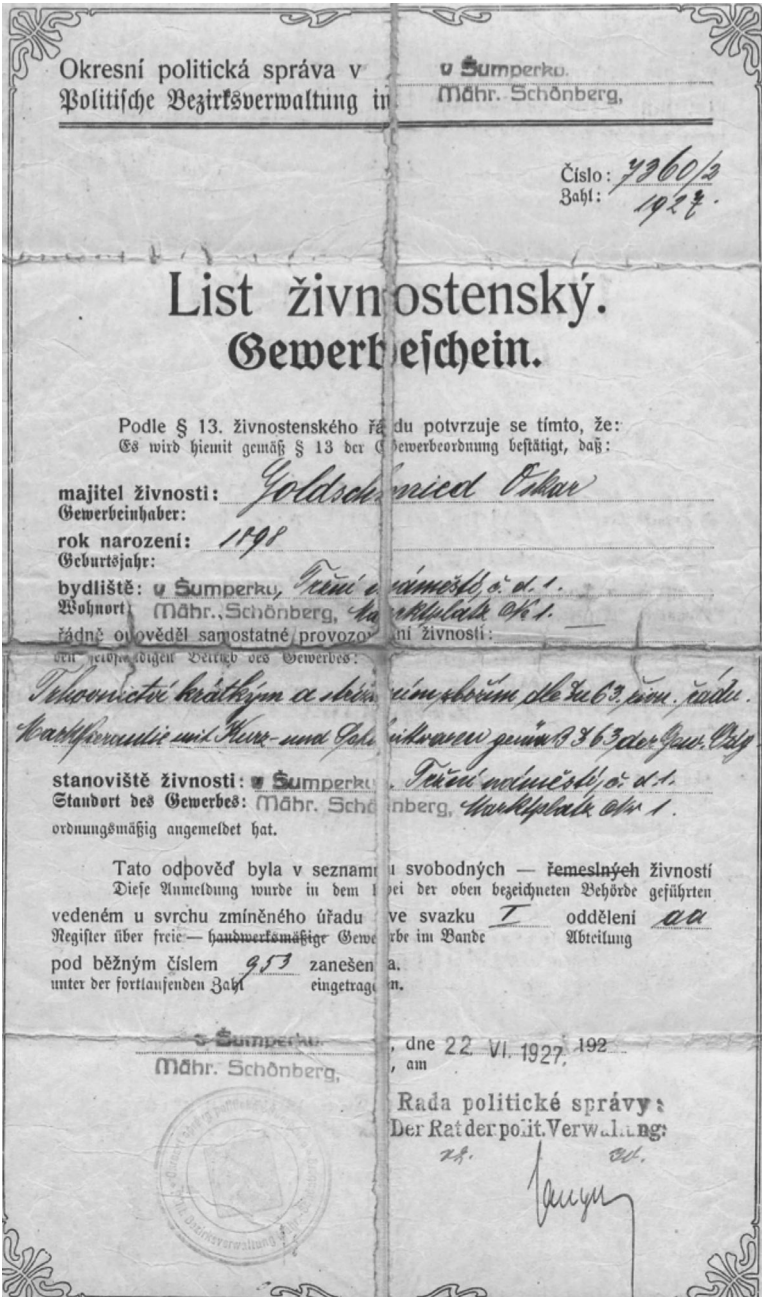 Okresní politická správa v v Šumperku.
Politische Bezirksverwaltung in Mähr. Schönberg,
Číslo: 7360/2
Zahl: 1927.
List živnostenský.
Gewerbeschein.
Podle § 13. živnostenského řádu potvrzuje se tímto, že:
Es wird hiemit gemäß § 13 der Gewerbeordnung bestätigt, daß:
majitel živnosti: Goldschmied Oskar
Gewerbeinhaber:
rok narození: 1898
Geburtsjahr:
bydliště: v Šumperku, Tržní náměstí, č. d. 1.
Wohnort: Mähr. Schönberg, Marktplatz No 1.
řádně opověděl samostatné provozování živnosti:
den selbständigen Betrieb des Gewerbes:
krátkým a dle 63, řádu.
mit Kurz- und gemäß § 63, der Gew. Odg.
stanoviště živnosti: v Šumperku, Tržní náměstí, č. d. 1.
Standort des Gewerbes: Mähr. Schönberg, Marktplatz No 1.
ordnungsmäßig angemeldet hat.
Tato odpověď byla v seznamu svobodných — řemeslných živností
Diese Anmeldung wurde in dem bei der oben bezeichneten Behörde geführten
vedeném u svrchu zmíněného úřadu ve svazku I oddělení aa
Register über freie — handwerksmäßige Gewerbe im Bande Abteilung
pod běžným číslem 953 zanešena.
unter der fortlaufenden Zahl eingetragen.
v Šumperku. , dne 22. VI. 1927. 192
Mähr. Schönberg, , am
Rada politické správy:
Der Rat der polit. Verwaltung: